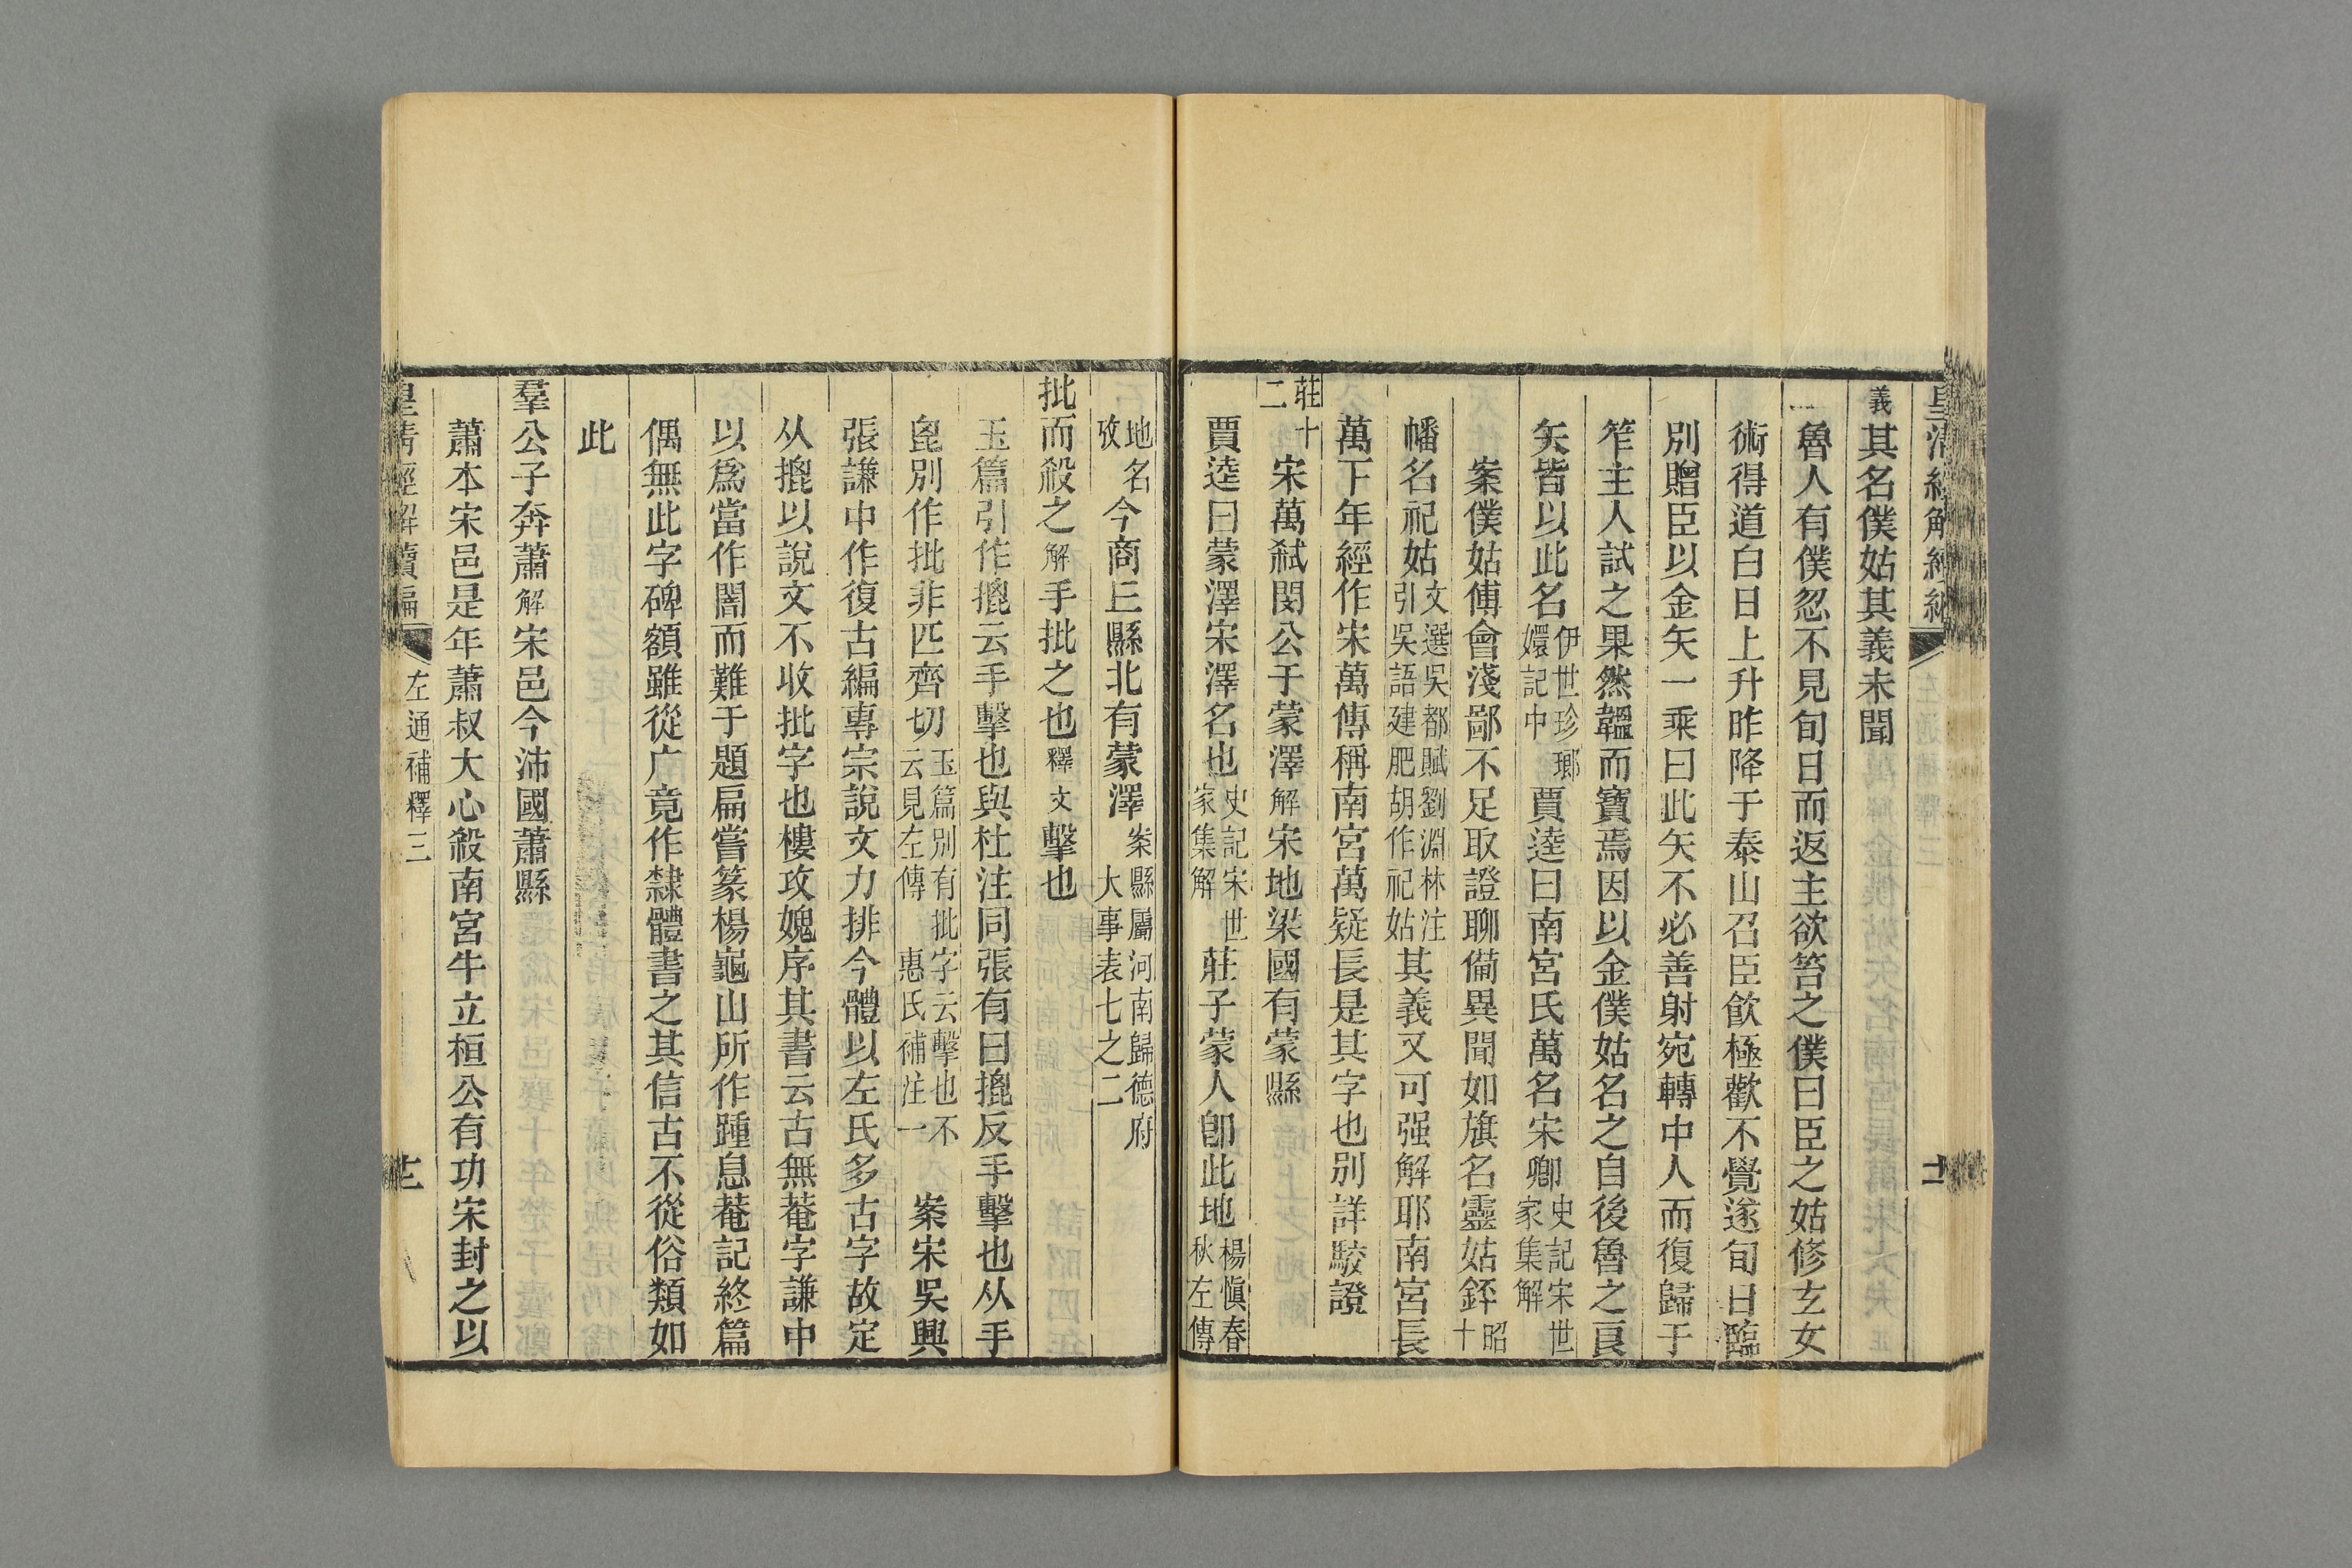 皇清經解續編
義其名僕姑其義未聞
魯人有僕忽不見旬日而返主欲笞之僕曰臣之姑修玄女
術得道白日上升昨降于泰山召臣飲極歡不覺遂旬日臨
別贈臣以金矢一乘曰此矢不必善射宛轉中人而復歸于
笮主人試之果然韞而寶焉因以金僕姑名之自後魯之良
矢皆以此名伊世珍瑯嬛記中賈逵曰南宮氏萬名宋卿史記宋世家集解
案僕姑傅會淺鄙不足取證聊備異聞如旗名靈姑銔昭十
幡名祀姑文選吳都賦劉淵林注引吳語建肥胡作祀姑其義又可强解耶南宮長
萬下年經作宋萬傳稱南宮萬疑長是其字也別詳駮證
莊十二宋萬弑閔公于蒙澤解宋地梁國有蒙縣
賈逵曰蒙澤宋澤名也史記宋世家集解莊子蒙人卽此地楊愼春秋左傳
地名攷今商丘縣北有蒙澤案縣屬河南歸德府大事表七之二
批而殺之解手批之也釋文擊也
玉篇引作㧗云手擊也與杜注同張有曰㧗反手擊也从手
毘別作批非匹齊切玉篇別有批字云擊也不云見左傳惠氏補注一案宋吳興
張謙中作復古編專宗說文力排今體以左氏多古字故定
从㧗以說文不收批字也樓攻媿序其書云古無菴字謙中
以爲當作闇而難于題扁嘗篆楊龜山所作踵息菴記終篇
偶無此字碑額雖從广竟作隸體書之其信古不從俗類如
此
羣公子奔蕭解宋邑今沛國蕭縣
蕭本宋邑是年蕭叔大心殺南宮牛立桓公有功宋封之以
皇清經解續編 左通補釋三